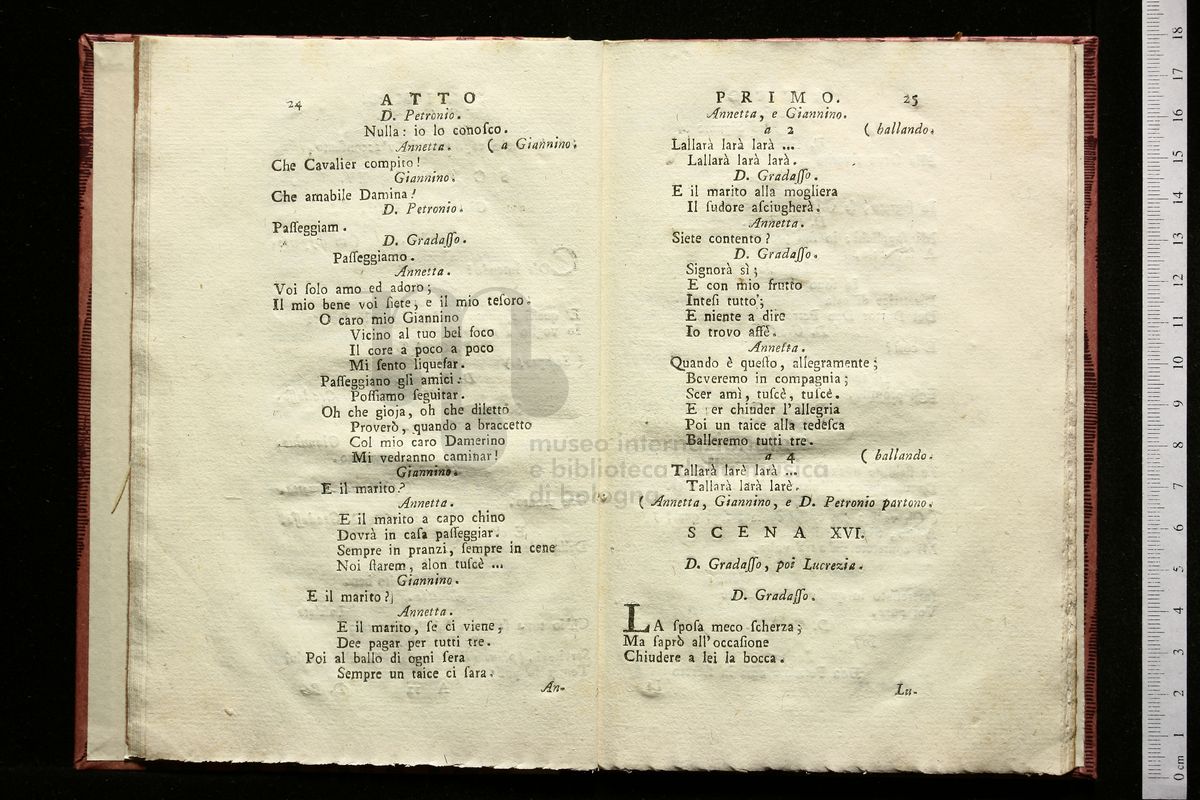 24 ATTO
D. Petronio.
Nulla: io lo conoſco.
Annetta. ( a Giannino.
Che Cavalier compito!
Giannino.
Che amabile Damina!
D. Petronio.
Paſſeggiam.
D. Gradaſſo.
Paſſeggiamo.
Annetta.
Voi ſolo amo ed adoro;
Il mio bene voi ſiete, e il mio teſoro.
O caro mio Giannino
Vicino al tuo bel foco
Il core a poco a poco
Mi ſento liquefar.
Paſſeggiano gli amici:
Poſſiamo ſeguitar.
Oh che gioja, oh che diletto
Proverò, quando a braccetto
Col mio caro Damerino
Mi vedranno caminar!
Giannino.
E il marito?
Annetta.
E il marito a capo chino
Dovrà in caſa paſſeggiar.
Sempre in pranzi, ſempre in cene
Noi ſtarem, alon tuſcè ...
Giannino.
E il marito?
Annetta.
E il marito, ſe ci viene,
Dee pagar per tutti tre.
Poi al ballo di ogni ſera
Sempre un taice ci ſara.
An-
PRIMO. 25
Annetta, e Giannino.
a 2 ( ballando.
Lallarà larà larà ...
Lallarà larà larà.
D. Gradaſſo.
E il marito alla mogliera
Il ſudore aſciugherà.
Annetta.
Siete contento?
D. Gradaſſo.
Signorà sì;
E con mio frutto
Inteſi tutto;
E niente a dire
Io trovo affè.
Annetta.
Quando è queſto, allegramente;
Beveremo in compagnia;
Scer amì, tuſcè, tuſcè.
E er chiuder l'allegria
Poi un taice alla tedeſca
Balleremo tutti tre.
a 4 ( ballando.
Tallarà larè larà ...
Tallarà larà larè.
( Annetta, Giannino, e D. Petronio partono.
SCENA XVI.
D. Gradaſſo, poi Lucrezia.
D. Gradaſſo.
LA ſpoſa meco ſcherza;
Ma ſaprò all'occaſione
Chiudere a lei la bocca.
Lu-
museo internazionale
e biblioteca della musica
di bologna
0 cm 1 2 3 4 5 6 7 8 9 10 11 12 13 14 15 16 17 18